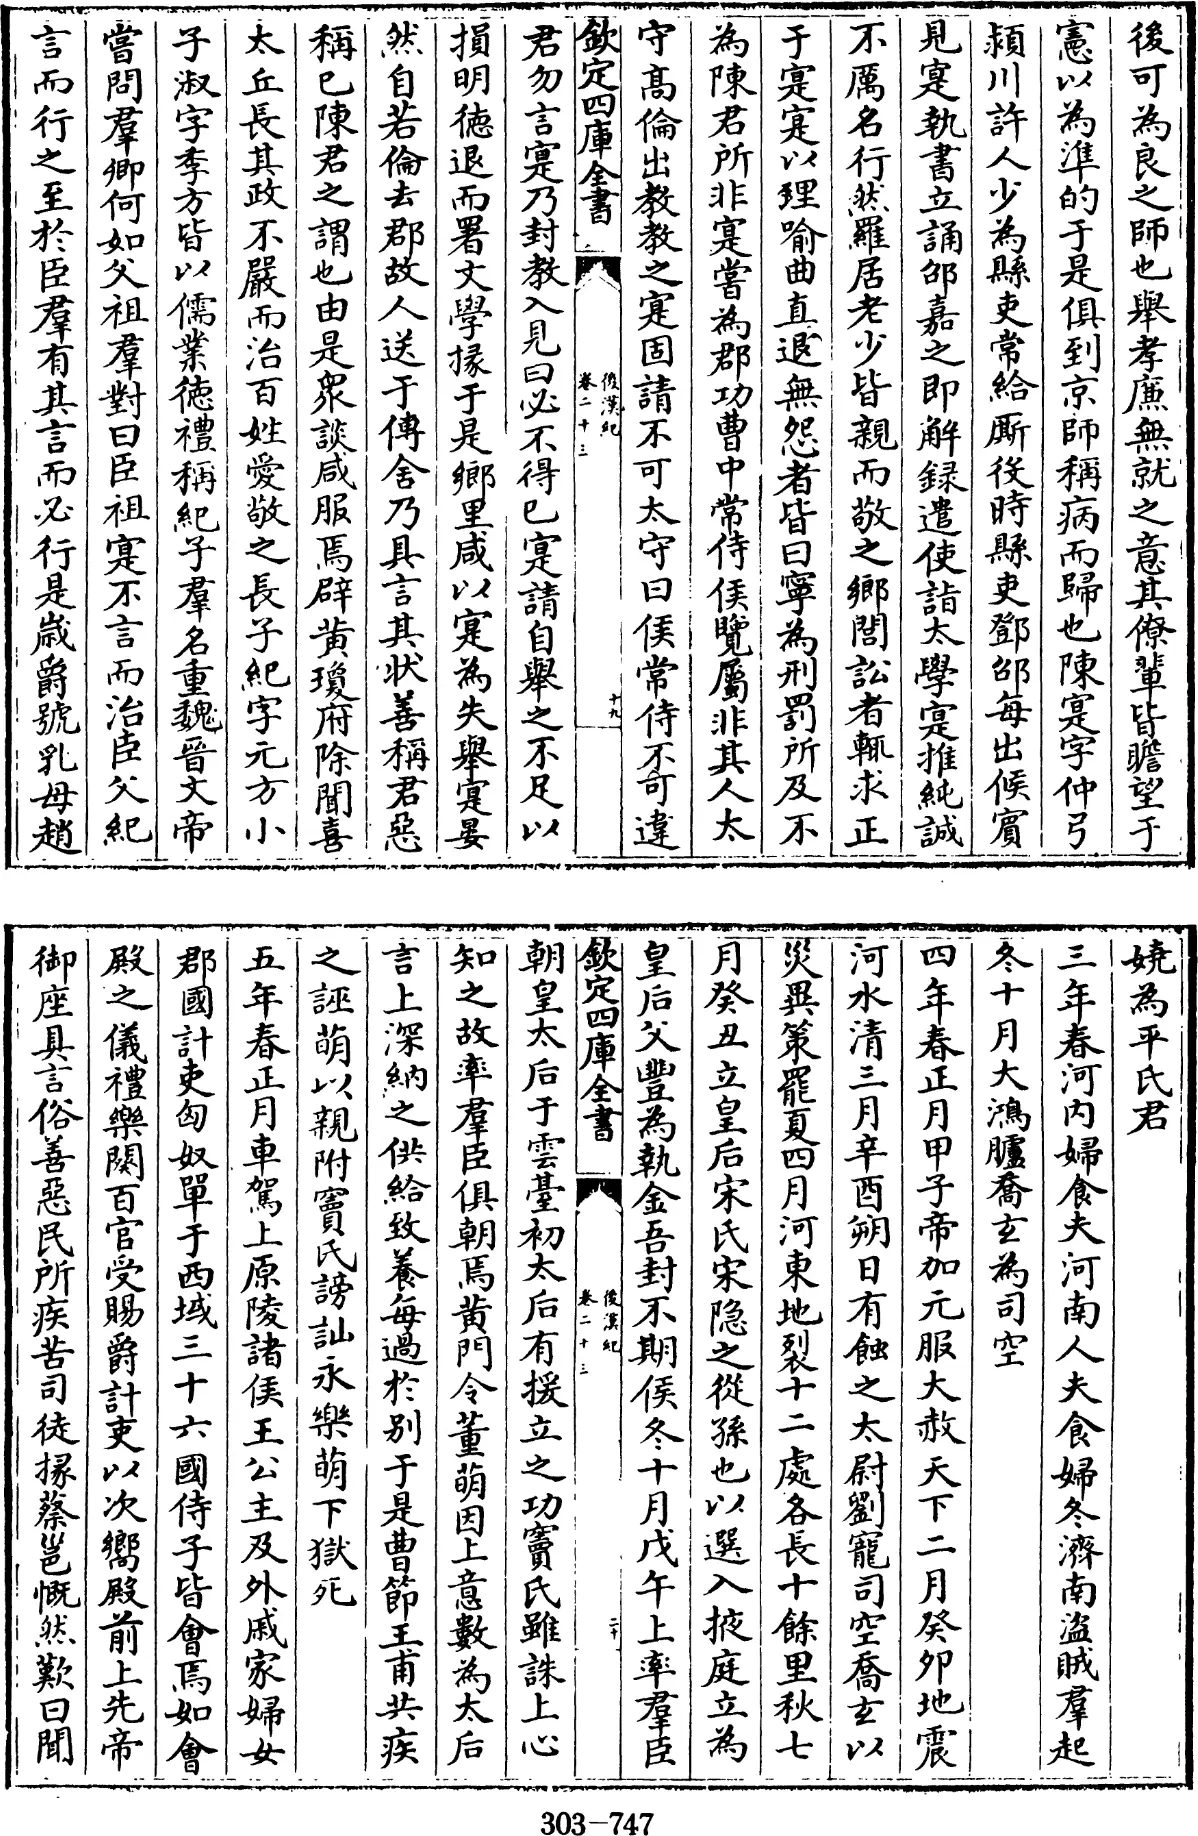 後可為良之師也舉孝廉無就之意其僚輩皆瞻望于
憲以為準的于是俱到京師稱病而歸也陳寔字仲弓
潁川許人少為縣吏常給厮役時縣吏鄧邵每出候賔
見寔執書立誦邵嘉之即解録遣使詣太學寔推純誠
不厲名行然羅居老少皆親而敬之鄉閭訟者輒求正
于寔寔以理喻曲直退無怨者皆曰寧為刑罰所及不
為陳君所非寔嘗為郡功曹中常侍侯覽屬非其人太
守髙倫出教教之寔固請不可太守曰侯常侍不可違
欽定四庫全書
後漢紀
卷二十三
十九
君勿言寔乃封教入見曰必不得已寔請自舉之不足以
損明徳退而署文學掾于是鄉里咸以寔為失舉寔晏
然自若倫去郡故人送于傳舍乃具言其状善稱君惡
稱已陳君之謂也由是衆談咸服焉辟黄瓊府除聞喜
太丘長其政不嚴而治百姓愛敬之長子紀字元方小
子淑字季方皆以儒業徳禮稱紀子羣名重魏晉文帝
嘗問羣卿何如父祖羣對曰臣祖寔不言而治臣父紀
言而行之至於臣羣有其言而必行是歳爵號乳母趙
嬈為平氏君
三年春河内婦食夫河南人夫食婦冬濟南盜賊羣起
冬十月大鴻臚喬玄為司空
四年春正月甲子帝加元服大赦天下二月癸卯地震
河水清三月辛酉朔日有蝕之太尉劉寵司空喬玄以
災異策罷夏四月河東地裂十二處各長十餘里秋七
月癸丑立皇后宋氏宋隐之從孫也以選入掖庭立為
皇后父豐為執金吾封不期侯冬十月戊午上率羣臣
欽定四庫全書
後漢紀
卷二十三
二十
朝皇太后于雲臺初太后有援立之功竇氏雖誅上心
知之故率羣臣俱朝焉黄門令董萌因上意數為太后
言上深納之供給致養每過於别于是曹節王甫共疾
之誣萌以親附竇氏謗訕永樂萌下獄死
五年春正月車駕上原陵諸侯王公主及外戚家婦女
郡國計吏匈奴單于西域三十六國侍子皆會焉如會
殿之儀禮樂闋百官受賜爵計吏以次嚮殿前上先帝
御座具言俗善惡民所疾苦司徒掾蔡邕慨然歎曰聞
303-747